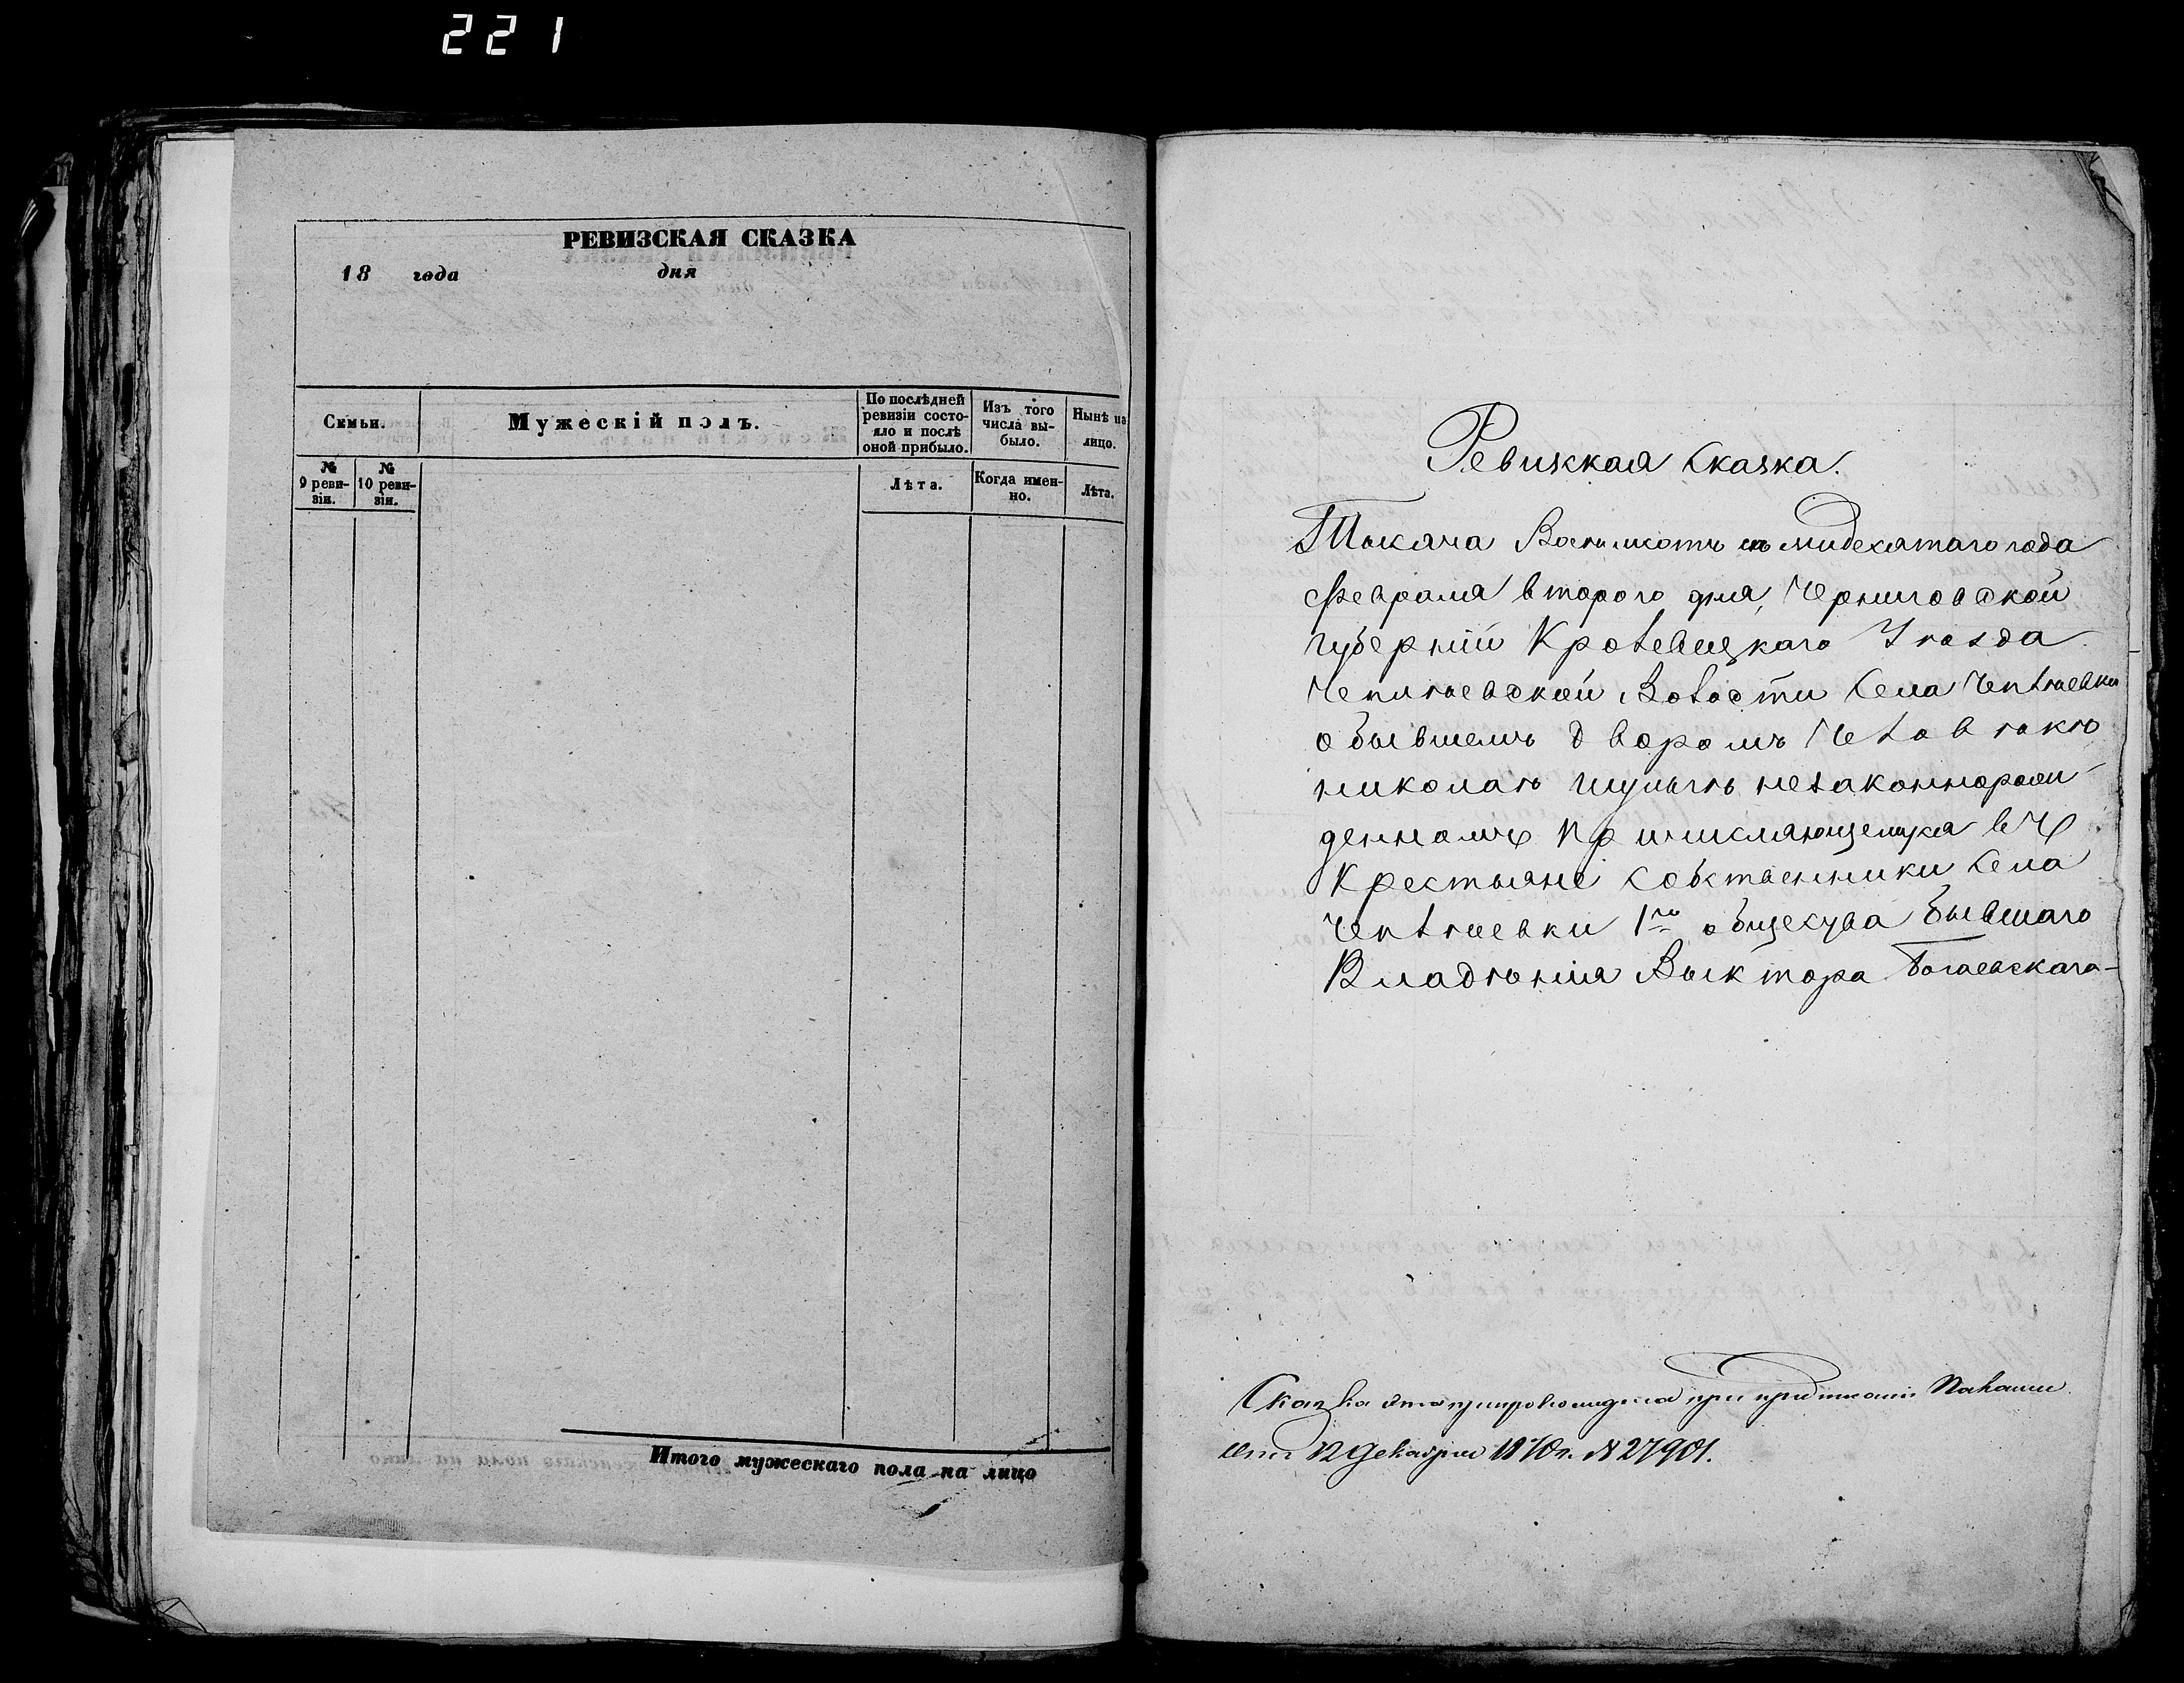 221
РЕВИЗСКАЯ СКАЗКА
18 года дня
Семьи.
Мужескій полъ.
По послѣдней ревизіи состояло и послѣ оной прибыло.
Изъ того числа выбыло.
Нынѣ на лицо.
№ 9 ревизіи.
№ 10 ревизіи.
Лѣта.
Когда именно.
Лѣта.
Итого мужескаго пола на лицо
Ревизская Сказка.
Тысяча Восимсотъ семидесятаго года
Февраля второго дня, Черниговской
губерніи Кролевецкаго Уѣзда
Чеплѣевской Волости Села Чеплѣевки
о бывшемъ дворомъ Человѣкѣ
николаѣ незаконнорож
денномъ причисляющемуся въ
Крестьяне Собственники Села
Чеплѣевки 1го общества бывшаго
Владѣнія Выктора Богаевскаго
Сказка эта при Палаты
отъ 12 декабря 1870г. № 27901.